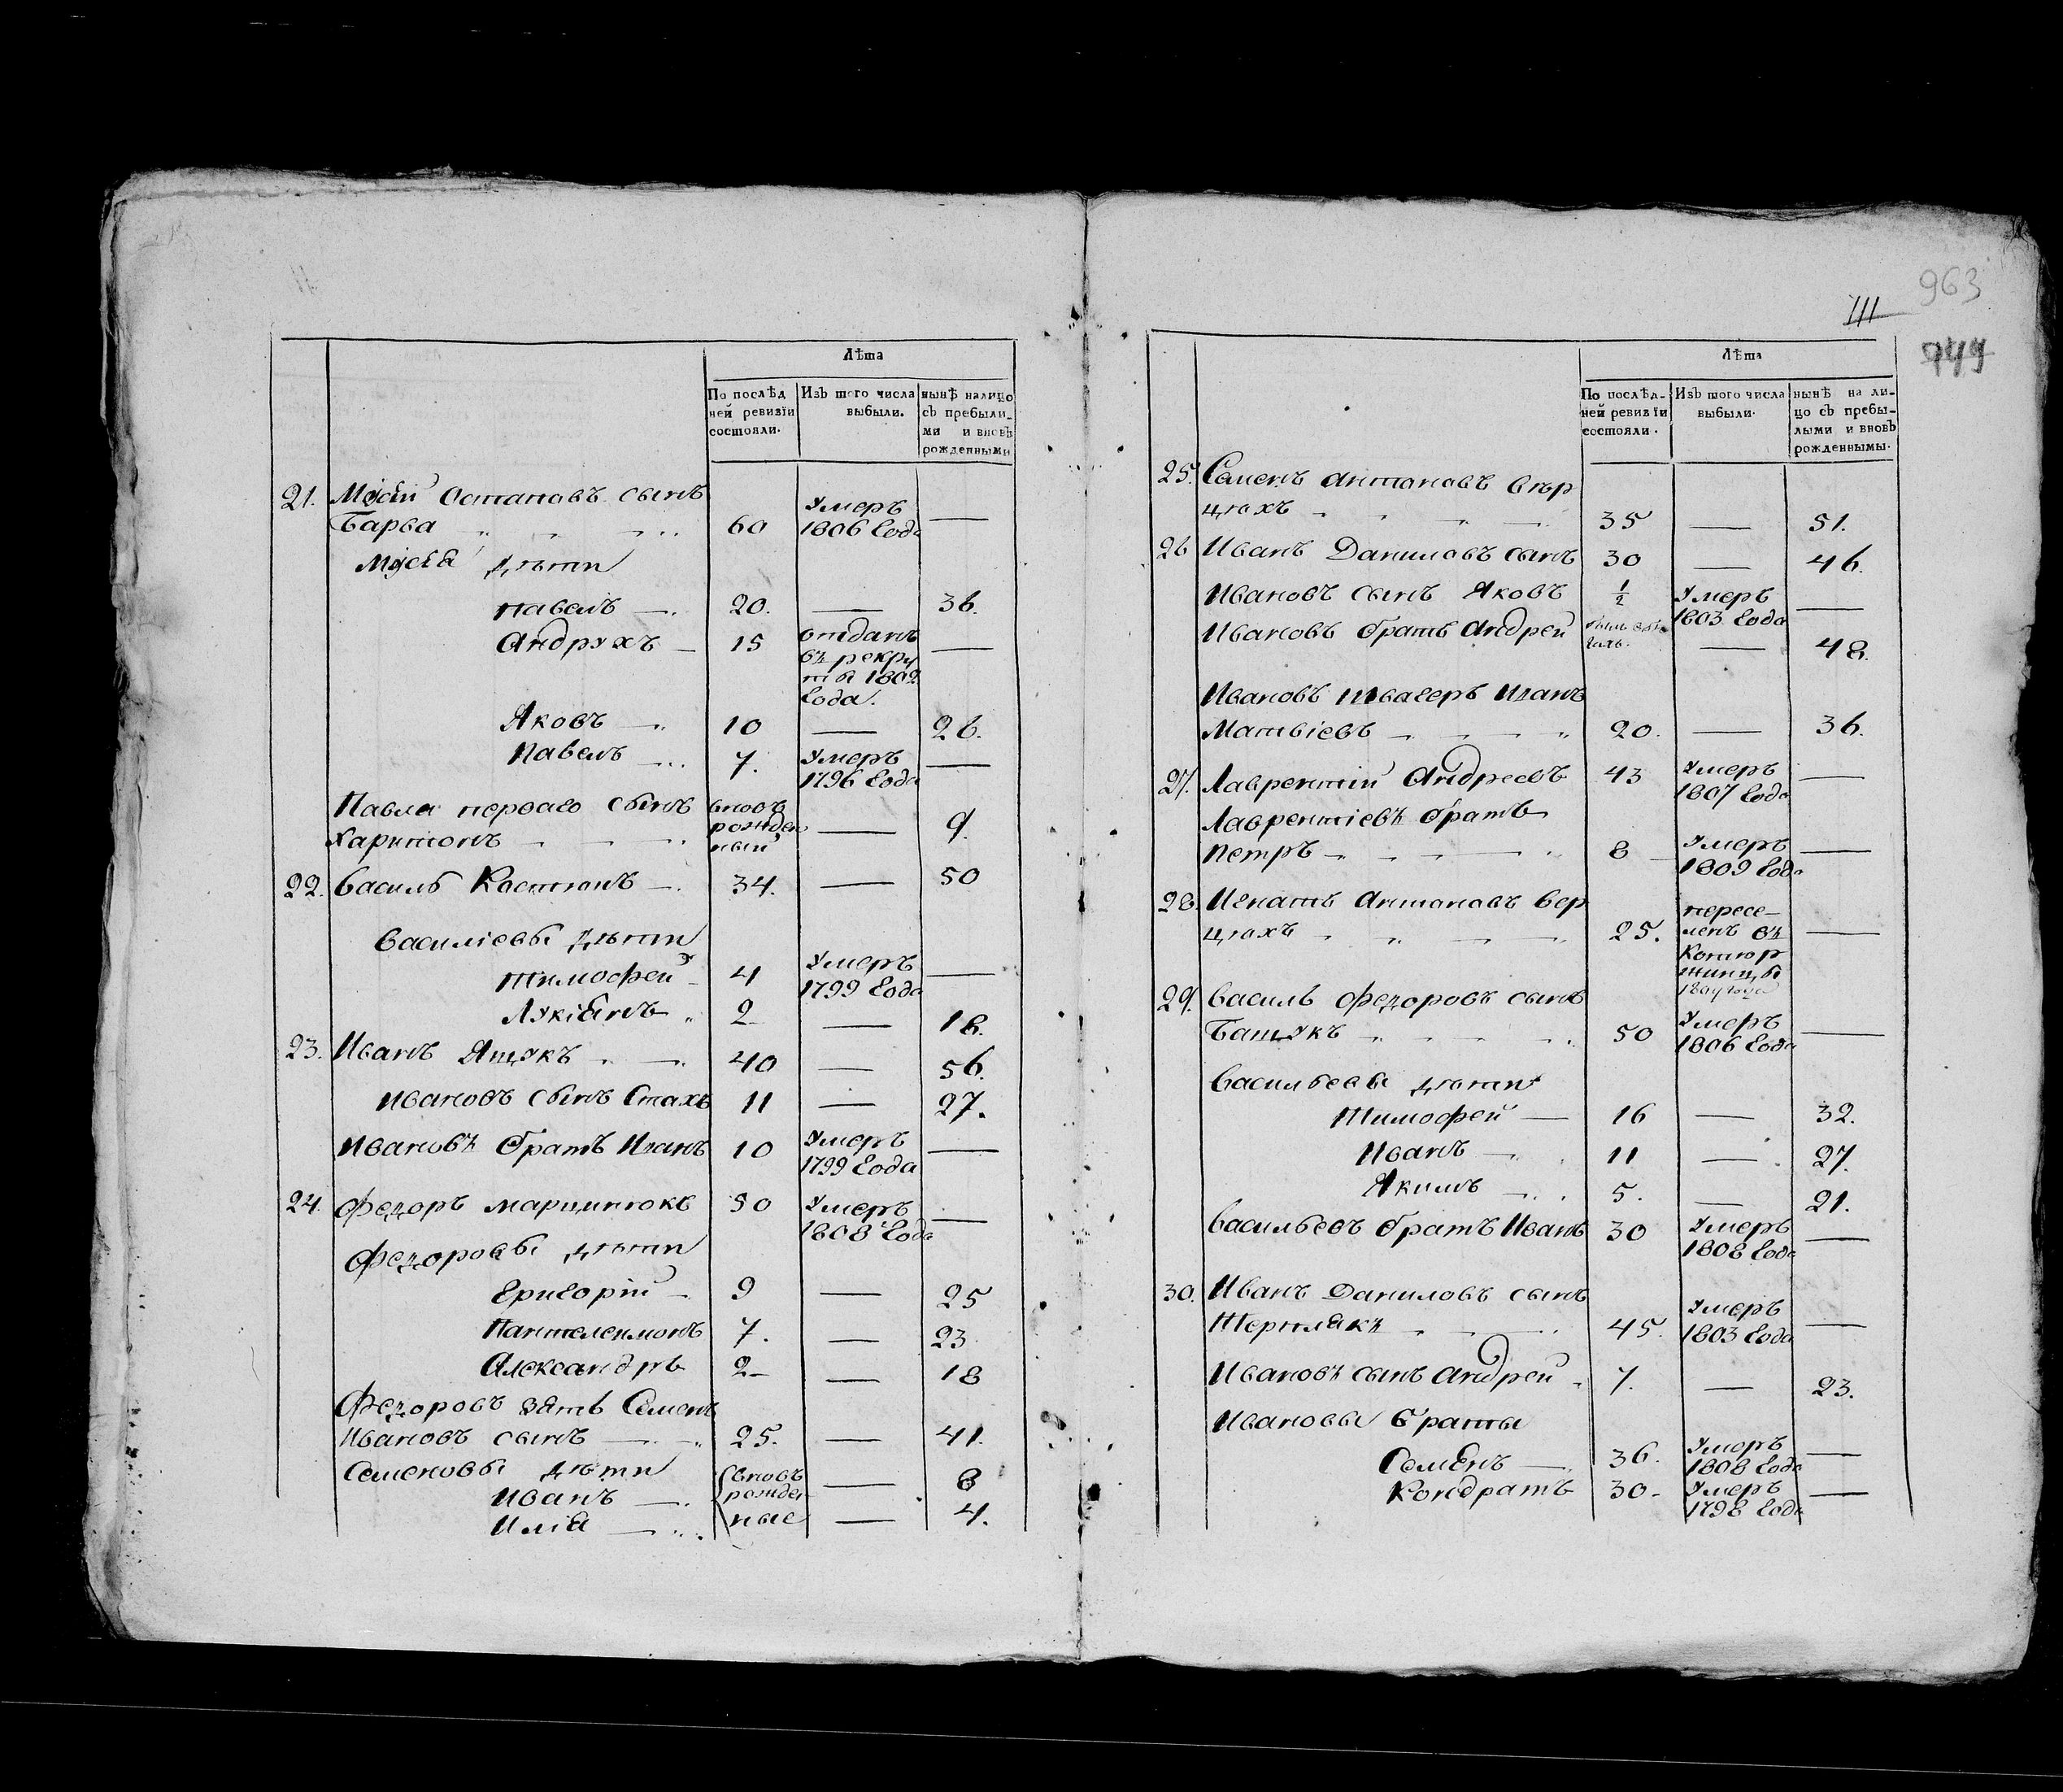 963
111
749
Лѣта
По послѣд
ней ревизїи
состояли.
Изъ того числа
выбыли.
нынѣ налицо
съ пребыли_
ми и вновь
рожденными
21. Остаповъ сынъ
Барва 60 Умеръ 1806 Года —
дѣти
Павелъ 20. — 36.
Андрухъ 15 отданъ
въ рекру
ты 1802
Года. —
Яковъ 10 — 26.
Павелъ 7. Умеръ
1796 Года —
Павла перваго сынъ вновь
Харитонъ рожден
ный — 9.
22. Василь Костюкъ 34. — 50
Василіевы дѣти
Тимофей 4 Умеръ
1799 Года —
Лукіянъ 2 — 18.
23. Иванъ Ящукъ 40 — 56.
Ивановъ сынъ Стахъ 11 — 27.
Ивановъ братъ Иванъ 10 Умеръ
1799 Года —
24. Федоръ Марцинюкъ 50 Умеръ
1808 Года —
Федоровы дѣти
Григорій 9 — 25
Пантелеимонъ 7. — 23
Александръ 2 — 18
Федоровъ зять Семенъ
Ивановъ сынъ 25. — 41.
Семеновы дѣти вновь
Иванъ рожден — 8
Илія ные — 4.
Лѣта
По послѣд-
ней ревизїи
состояли.
Изъ того числа
выбыли.
нынѣ на ли-
цо съ пребы-
лыми и вновь
рожденнымы.
25. Семенъ Антоновъ Вер
цюхъ 35 — 51.
26 Иванъ Даниловъ сынъ 30 — 46.
Ивановъ сынъ Яковъ 1/2 Умеръ
1803 Года —
Ивановъ братъ Андрей — 48.
Ивановъ швагеръ Иванъ
Матвіевъ 20. — 36.
27. Лаврентій Андреевъ 43 Умеръ
1807 Года —
Лаврентіевъ братъ
Петръ 8 Умеръ
1809 Года —
28. Игнатъ Антоновъ Вер
цюхъ 25. пересе-
ленъ въ —
29. Василь Федоровъ сынъ
Бащукъ 50 Умеръ
1806 Года —
Васильевы дѣти
Тимофей — 16 — 32.
Иванъ 11 — 27.
Якимъ 5. — 21.
Васильевъ братъ Иванъ 30 Умеръ
1808 Года —
30. Иванъ Даниловъ сынъ
Тертякъ 45. Умеръ
1803 Года —
Ивановъ сынъ Андрей 7. — 23.
Ивановы браты
Семенъ 36. Умеръ
1808 Года —
Кондратъ 30 Умеръ
1798 Года —